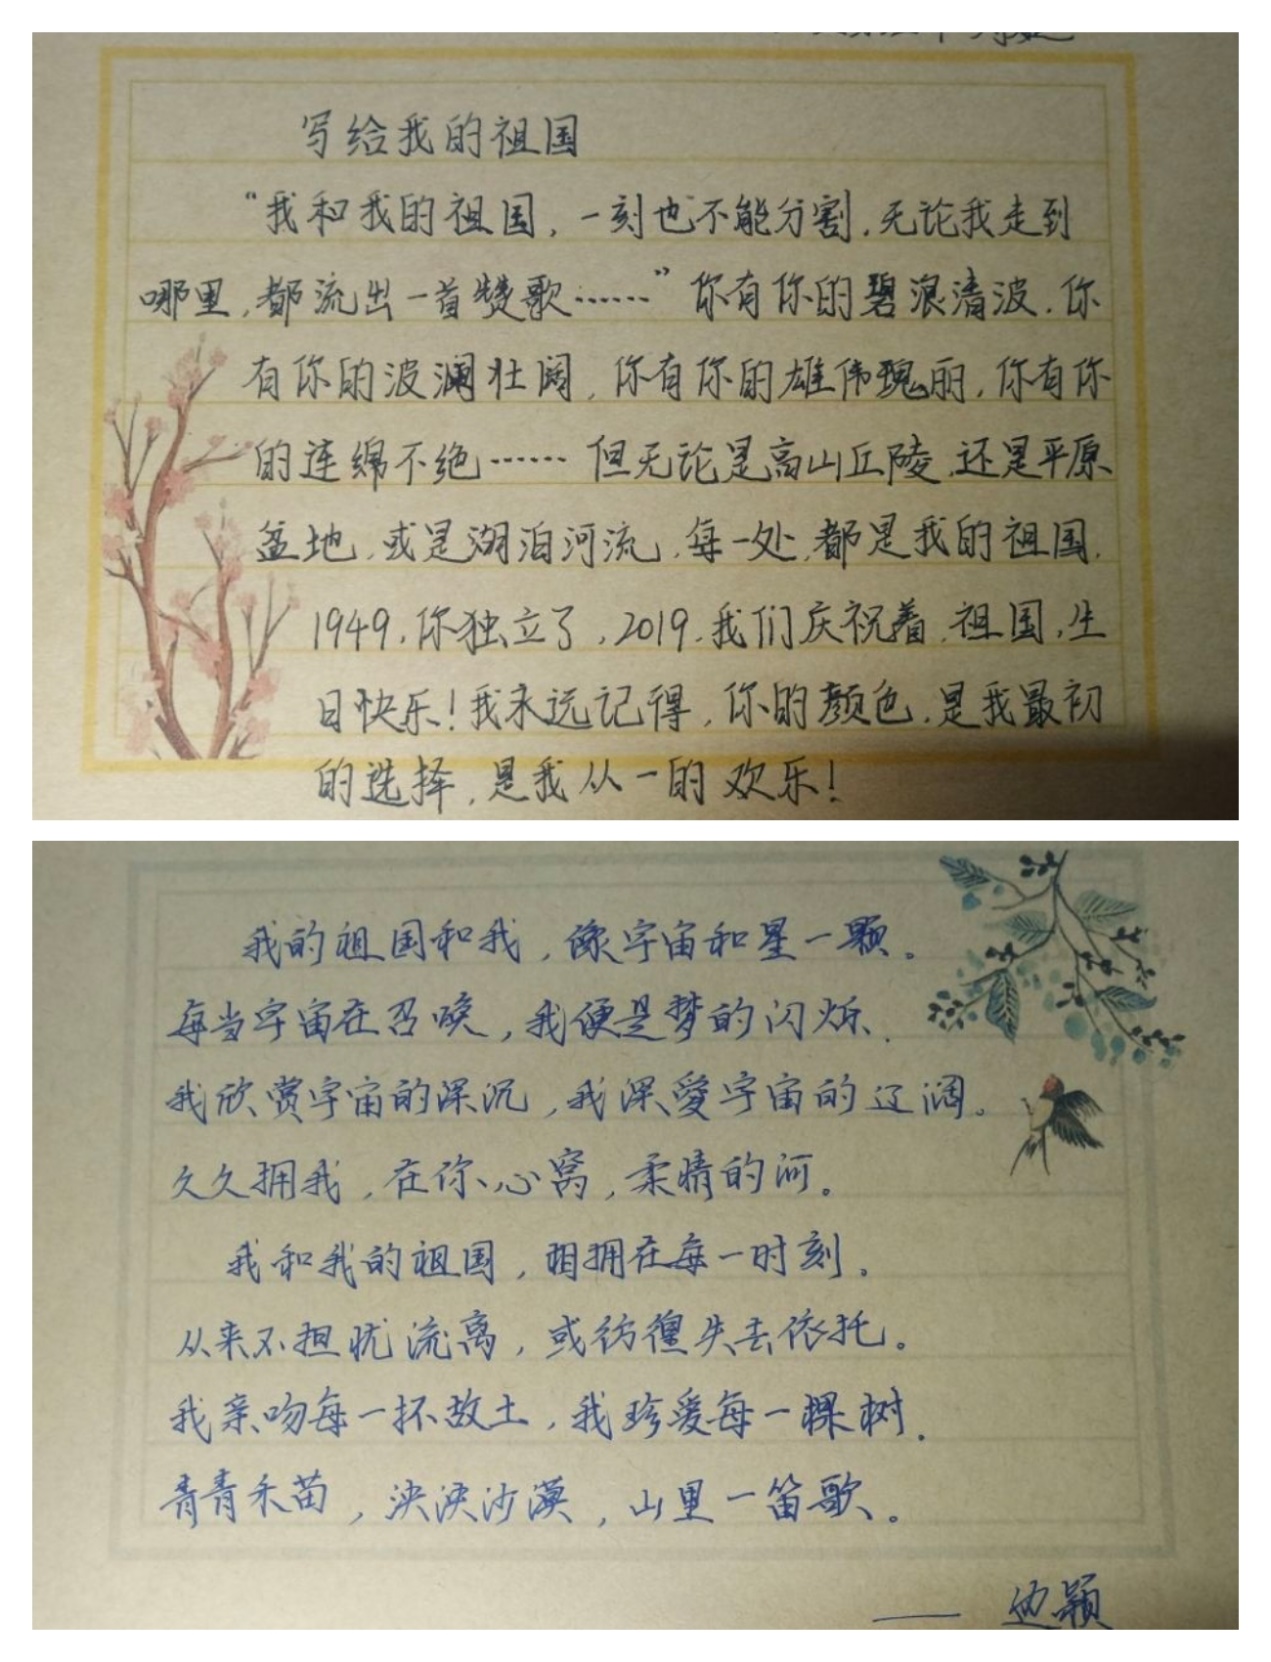 写给我的祖国
“我和我的祖国，一刻也不能分割，无论我走到
哪里，都流出一首赞歌……”你有你的碧浪清波，你
有你的波澜壮阔，你有你的雄伟瑰丽，你有你
的连绵不绝……但无论是高山丘陵，还是平原
盆地，或是湖泊河流，每一处，都是我的祖国，
1949，你独立了，2019，我们庆祝着，祖国，生
日快乐！我永远记得，你的颜色，是我最初
的选择，是我从一的欢乐！
我的祖国和我，像宇宙和星一颗。
每当宇宙在召唤，我便是梦的闪烁、
我欣赏宇宙的深沉，我深愛宇宙的辽阔。
久久拥我，在你心窝，柔情的河。
我和我的祖国，相拥在每一时刻。
从来不担忧流离，或彷徨失去依托。
我亲吻每一抔故土，我珍爱每一棵树．
青青禾苗，泱泱沙漠，山里一笛歌。
—— 边颖